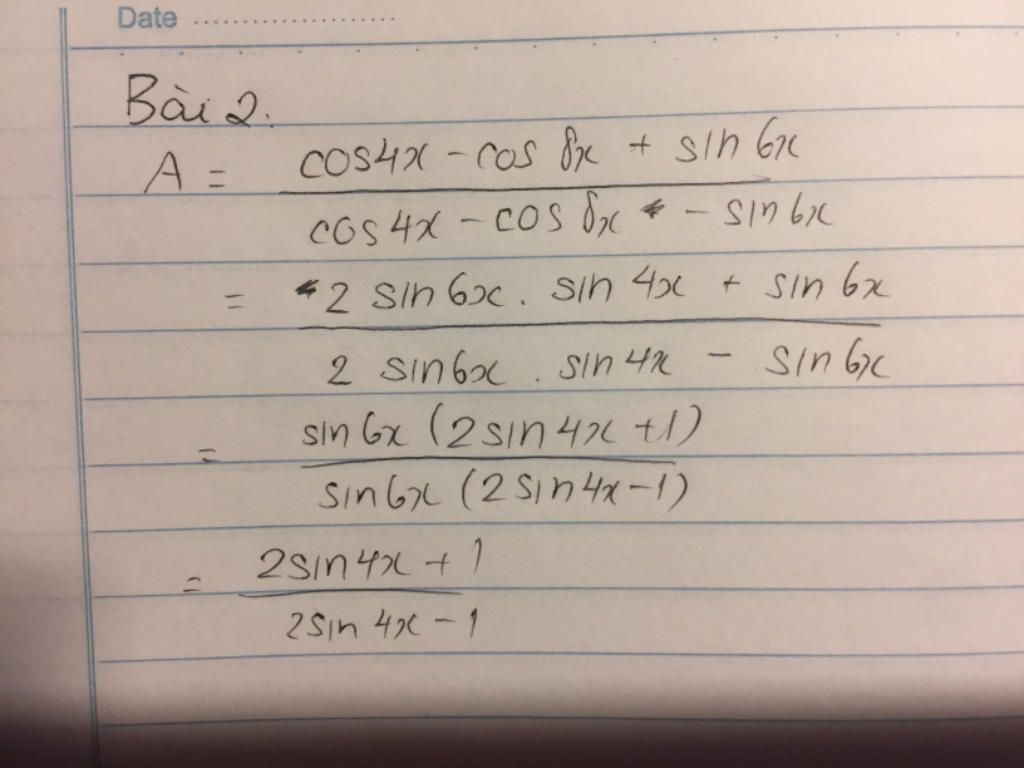 Date ....................
Bài 2.
A = (cos4x - cos 8x + sin 6x) / (cos4x - cos 8x - sin 6x)
= (2 sin 6x . sin 4x + sin 6x) / (2 sin 6x . sin 4x - sin 6x)
= (sin 6x (2 sin 4x + 1)) / (sin 6x (2 sin 4x - 1))
= (2 sin 4x + 1) / (2 sin 4x - 1)